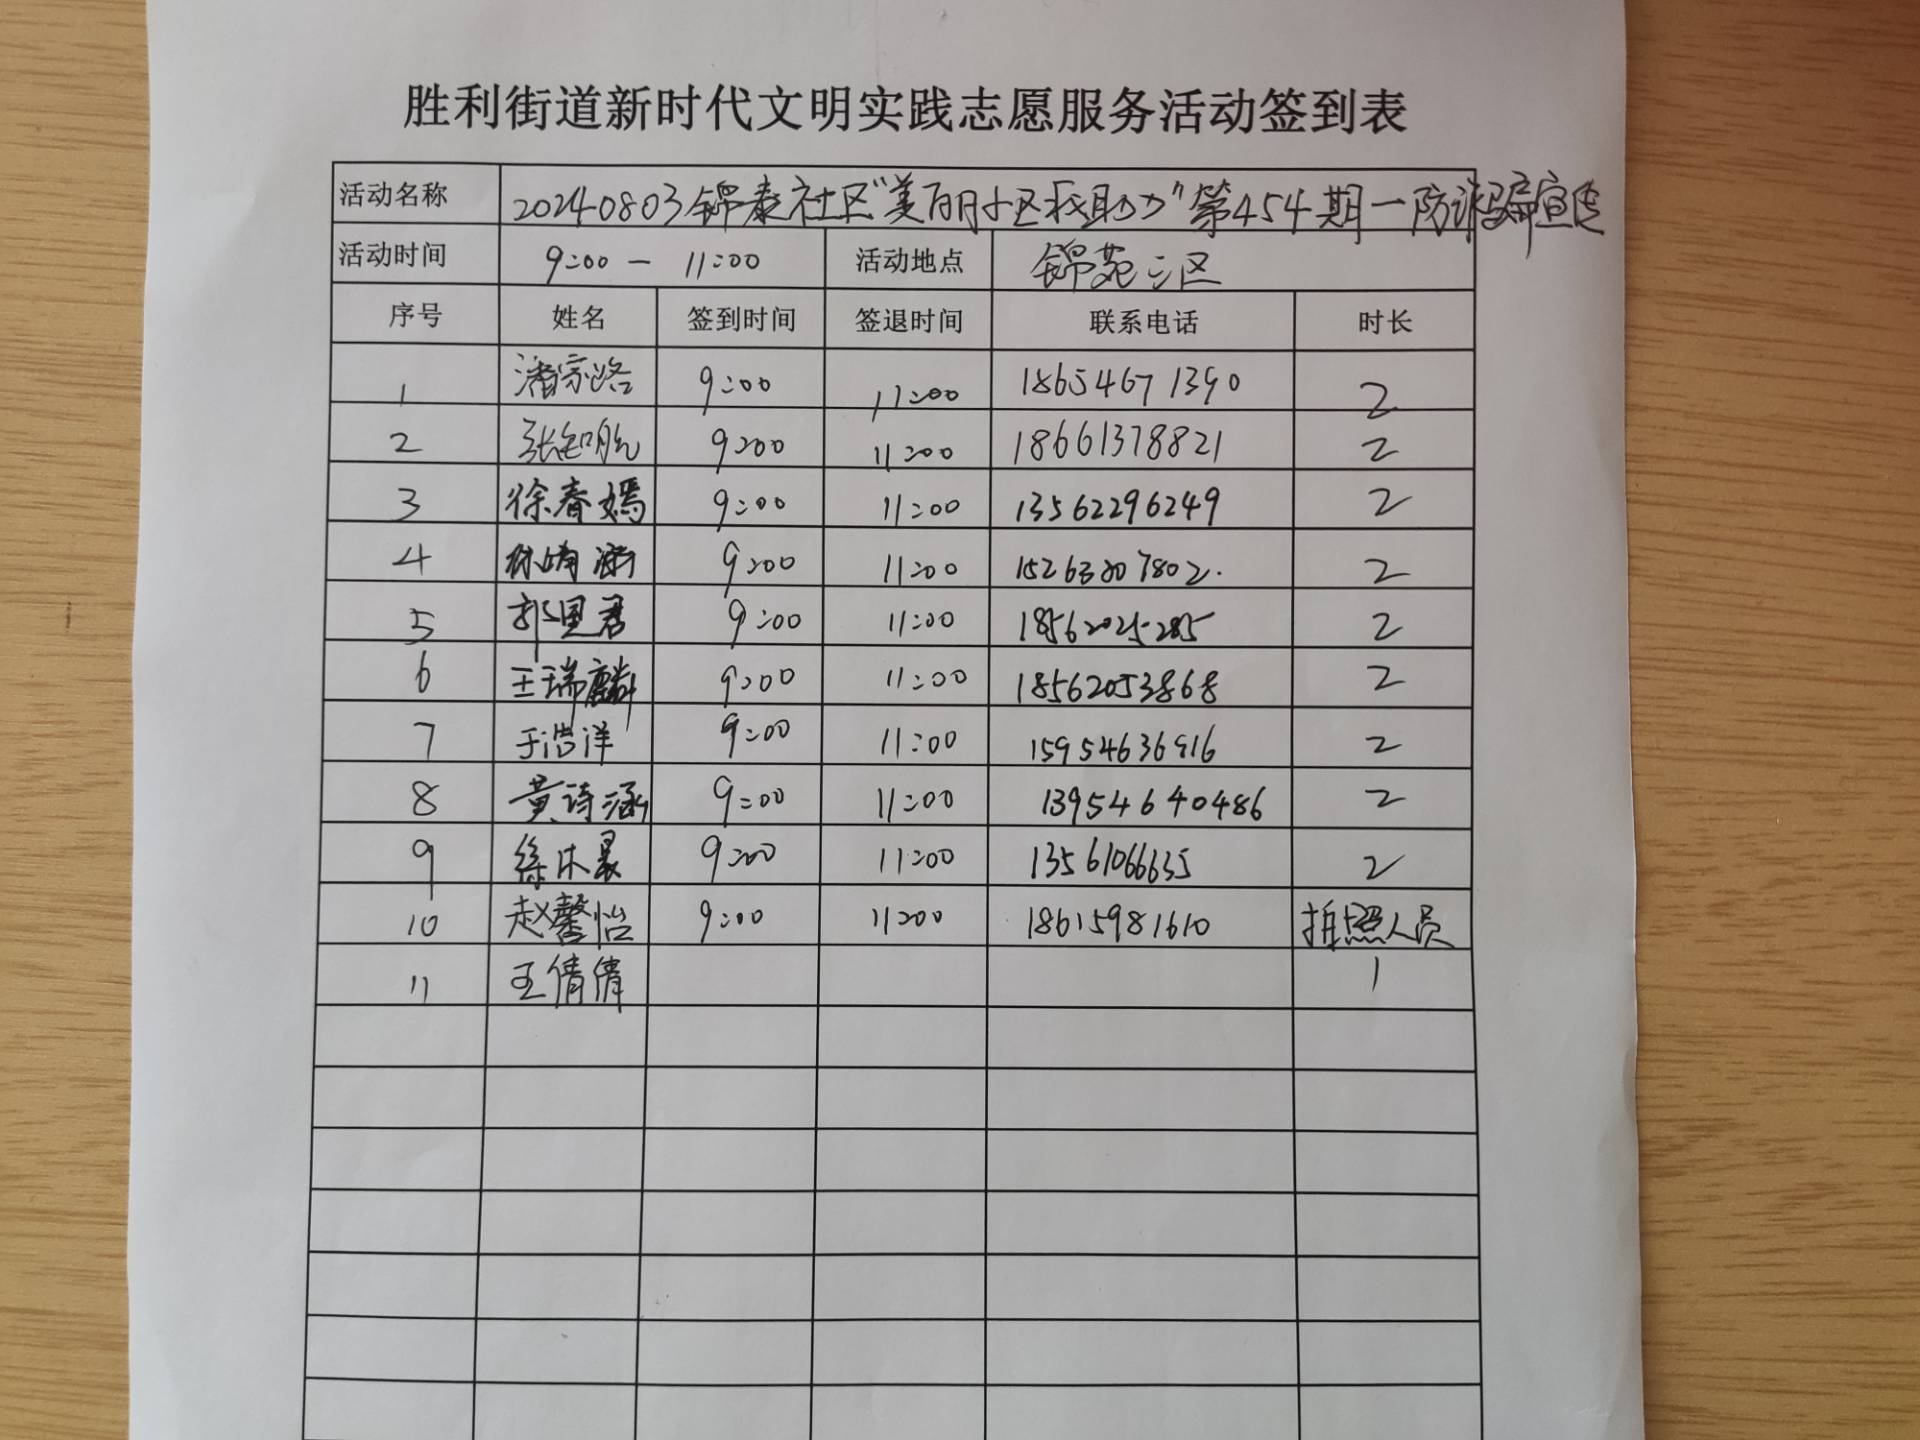 胜利街道新时代文明实践志愿服务活动签到表
活动名称 20240803锦泰社区“美丽小区我助力”第454期—防诈骗宣传
活动时间 9:00 — 11:00 活动地点 锦苑三区
序号 姓名 签到时间 签退时间 联系电话 时长
1 潘宗路 9:00 11:00 18654671390 2
2 张知航 9:00 11:00 18661378821 2
3 徐春嫣 9:00 11:00 13562296249 2
4 9:00 11:00 15263807802. 2
5 郭君 9:00 11:00 18562025285 2
6 王瑞麟 9:00 11:00 18562053868 2
7 于浩洋 9:00 11:00 15954636916 2
8 黄诗涵 9:00 11:00 13954640486 2
9 徐木晨 9:00 11:00 13561066635 2
10 赵馨怡 9:00 11:00 18615981610 拍照人员
11 王倩倩 1